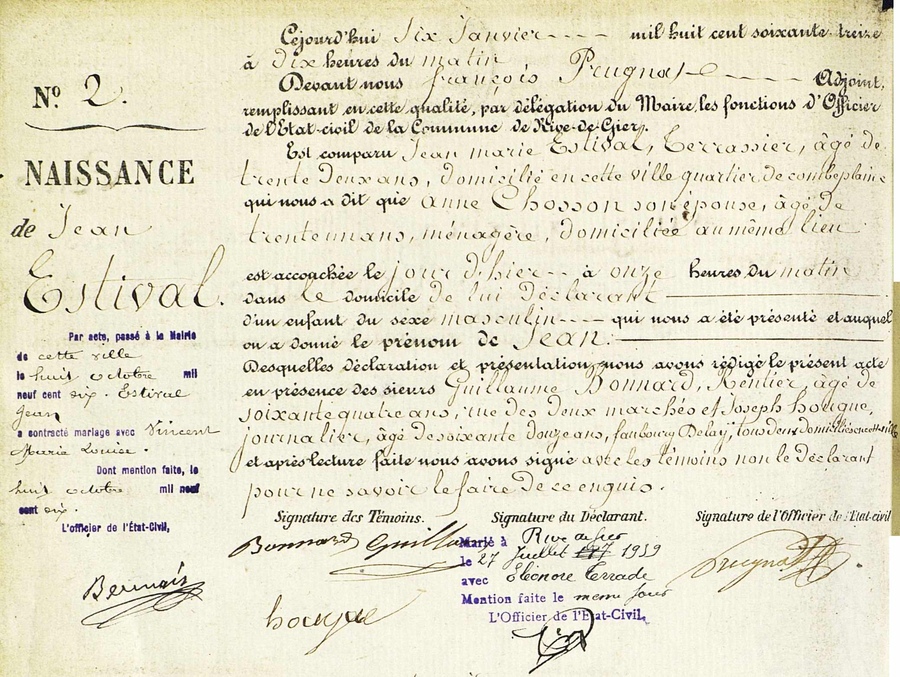 Nº 2.
NAISSANCE
de Jean
Estival.
Par acte, passé à la Mairie
de cette ville
le huit octobre mil
neuf cent dix. Estival
Jean
a contracté mariage avec Vincent
Marie Louise.
Dont mention faite, le
huit octobre mil neuf
cent dix.
L'officier de l'État-Civil,
Cejourd'hui Six Janvier ---- mil huit cent soixante-treize
à Dix heures du matin
Devant nous françois Prugnat ----- Adjoint,
remplissant en cette qualité, par délégation du Maire, les fonctions d'Officier
de l'Etat-civil de la Commune de Rive-de-Gier,
Est comparu Jean marie Estival, terrassier, âgé de
trente deux ans, domicilié en cette ville quartier de combeplaine
qui nous a dit que anne Chosson son épouse, âgé de
trente un ans, ménagère, domiciliée au même lieu
est accouchée le jour d'hier -- à onze heures du matin
dans le domicile de lui déclarant
d'un enfant du sexe masculin ---- qui nous a été présenté et auquel
on a donné le prénom de Jean.
Desquelles déclaration et présentation, nous avons rédigé le présent acte
en présence des sieurs Guillaume Bonnard, Rentier, âgé de
soixante quatre ans, rue des deux marchés et Joseph hougue,
journalier, âgé de soixante douze ans, faubourg Delay, tous deux domiciliés en cette ville
et après lecture faite nous avons signé avec les témoins non le déclarant
pour ne savoir le faire de ce enquis.
Signature des Témoins. Signature du Déclarant. Signature de l'Officier de l'Etat-civil
Bonnard Guillaume
hougue
Prugnat
Marié à Rive de Gier
le 27 Juillet 1939
avec Eléonore Terrade
Mention faite le même jour
L'Officier de l'Etat-Civil,